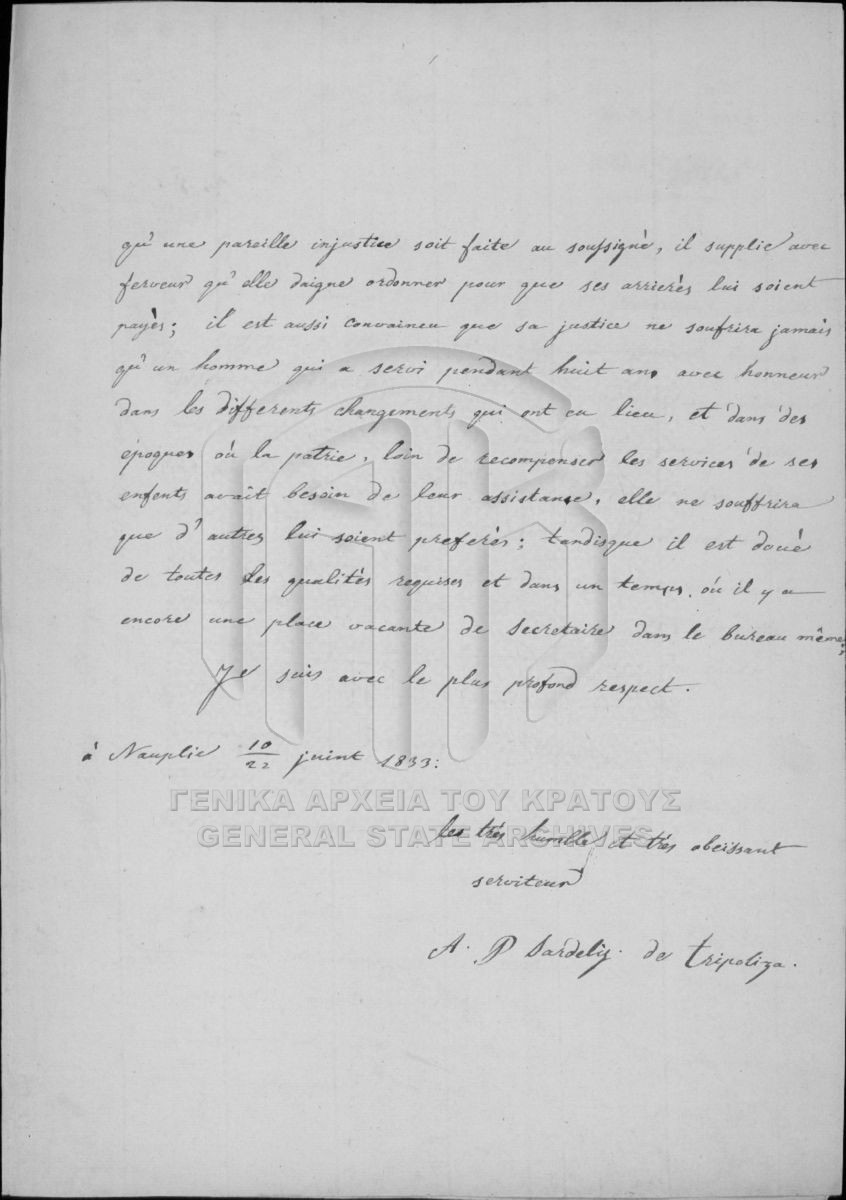 qu'une pareille injustice soit faite au soussigné, il supplie avec
ferveur qu'elle daigne ordonner pour que ses arrierés lui soient
payès; il est aussi convaincu que sa justice ne soufrira jamais
qu'un homme qui a servi pendant huit ans avec honneur
dans les differents changements qui ont eu lieu, et dans des
époques où la patrie, loin de recompenser les services de ses
enfents avait besoin de leur assistance, elle ne souffrira
que d'autres lui soient preferés; tandisque il est doué
de toutes les qualités requises et dans un temps où il y a
encore une place vacante de secretaire dans le bureau même;
Je suis avec le plus profond respect.
à Nauplie 10/22 juint 1833:
ΓΕΝΙΚΑ ΑΡΧΕΙΑ ΤΟΥ ΚΡΑΤΟΥΣ
GENERAL STATE ARCHIVES
les très humille et très obeissant
serviteur
A. P Sardelis de Tripoliza.